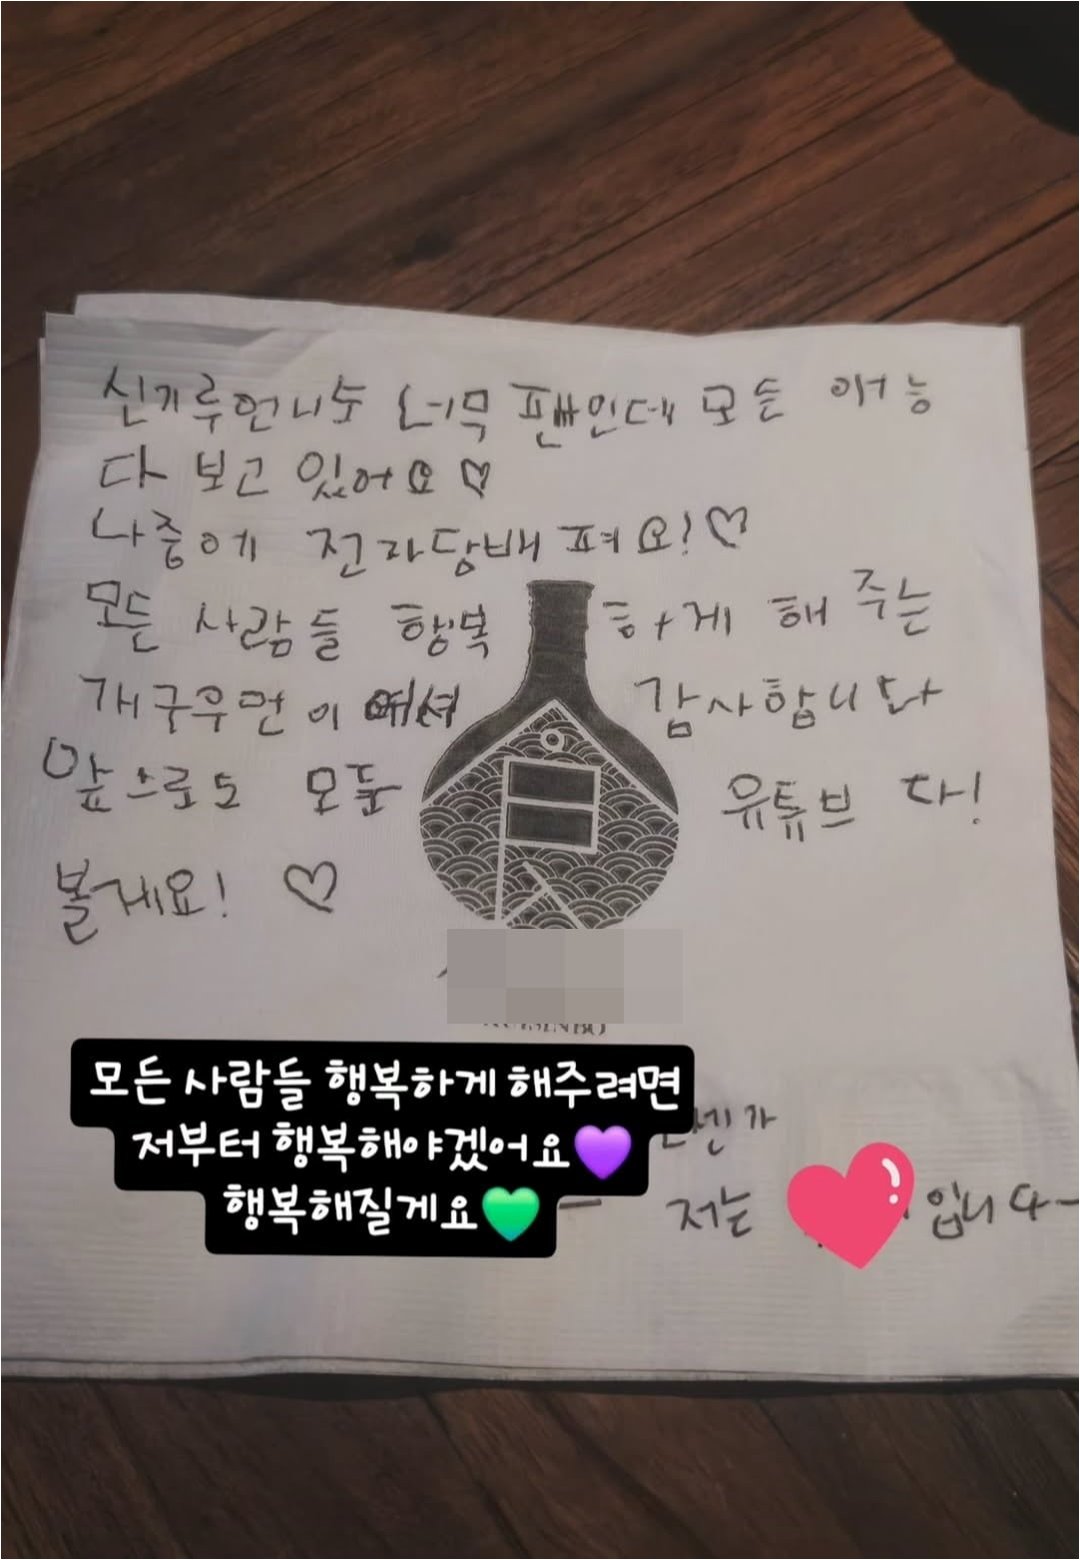 신기루언니 너무 팬인데 모든 예능
다 보고 있어요♡
나중에 전라당배 펴요!♡
모든 사람들 행복 하게 해 주는
개구우먼이여셔 감사합니다
앞으로도 모든 유튜브 다!
볼게요! ♡
모든 사람들 행복하게 해주려면
저부터 행복해야겠어요💜
행복해질게요💚
저는 입니다